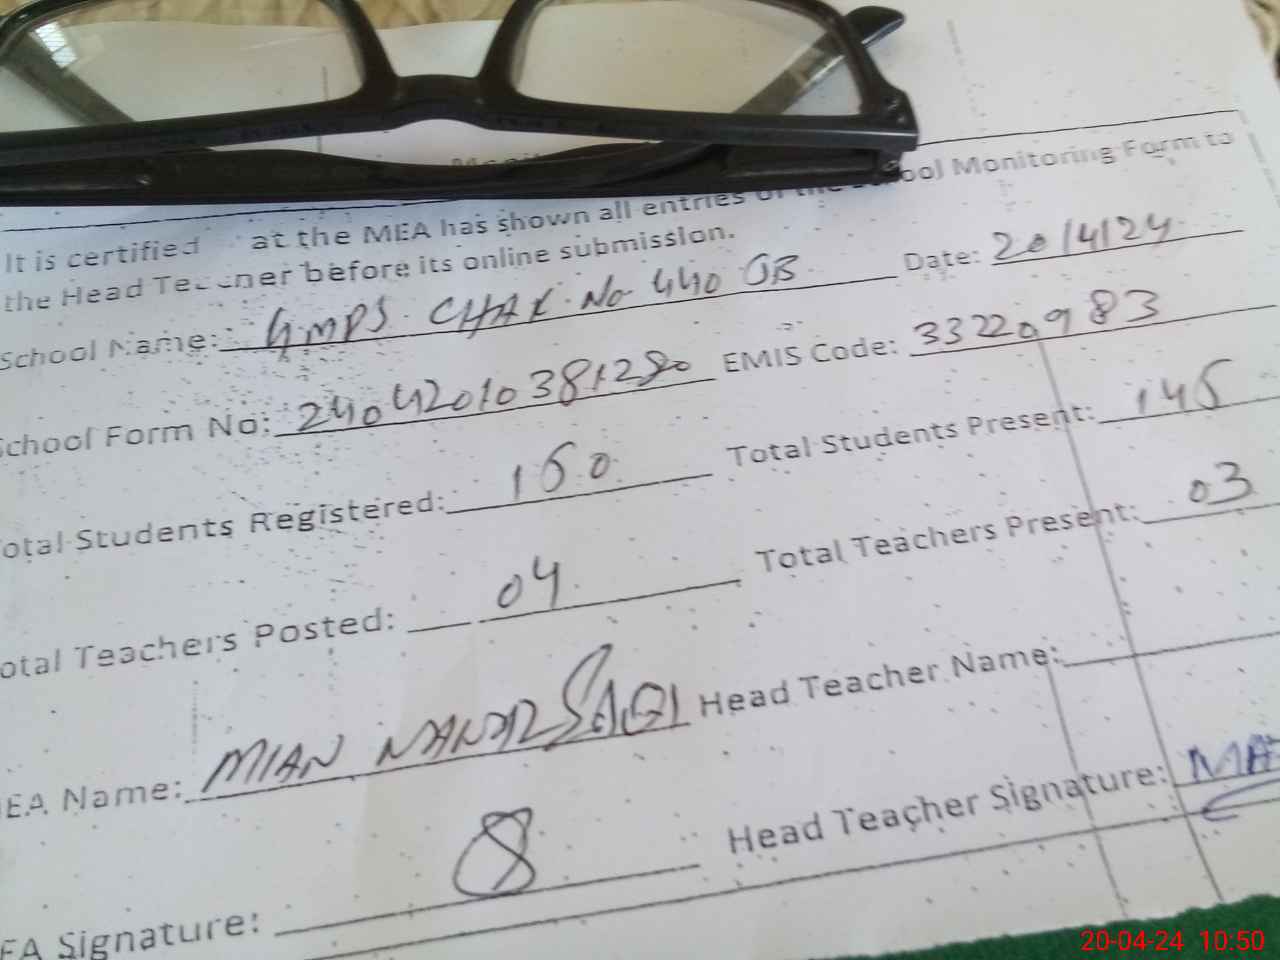 It is certified at the MEA has shown all entries of the School Monitoring Form to
the Head Teacher before its online submission.
School Name: GMPS CHAK No 440 GB Date: 20/4/24
School Form No: EMIS Code: 33220983
Total Students Registered: 150 Total Students Present: 145
Total Teachers Posted: 04 Total Teachers Present: 03
MEA Name: MIAN Head Teacher Name:
MEA Signature: Head Teacher Signature:
20-04-24 10:50